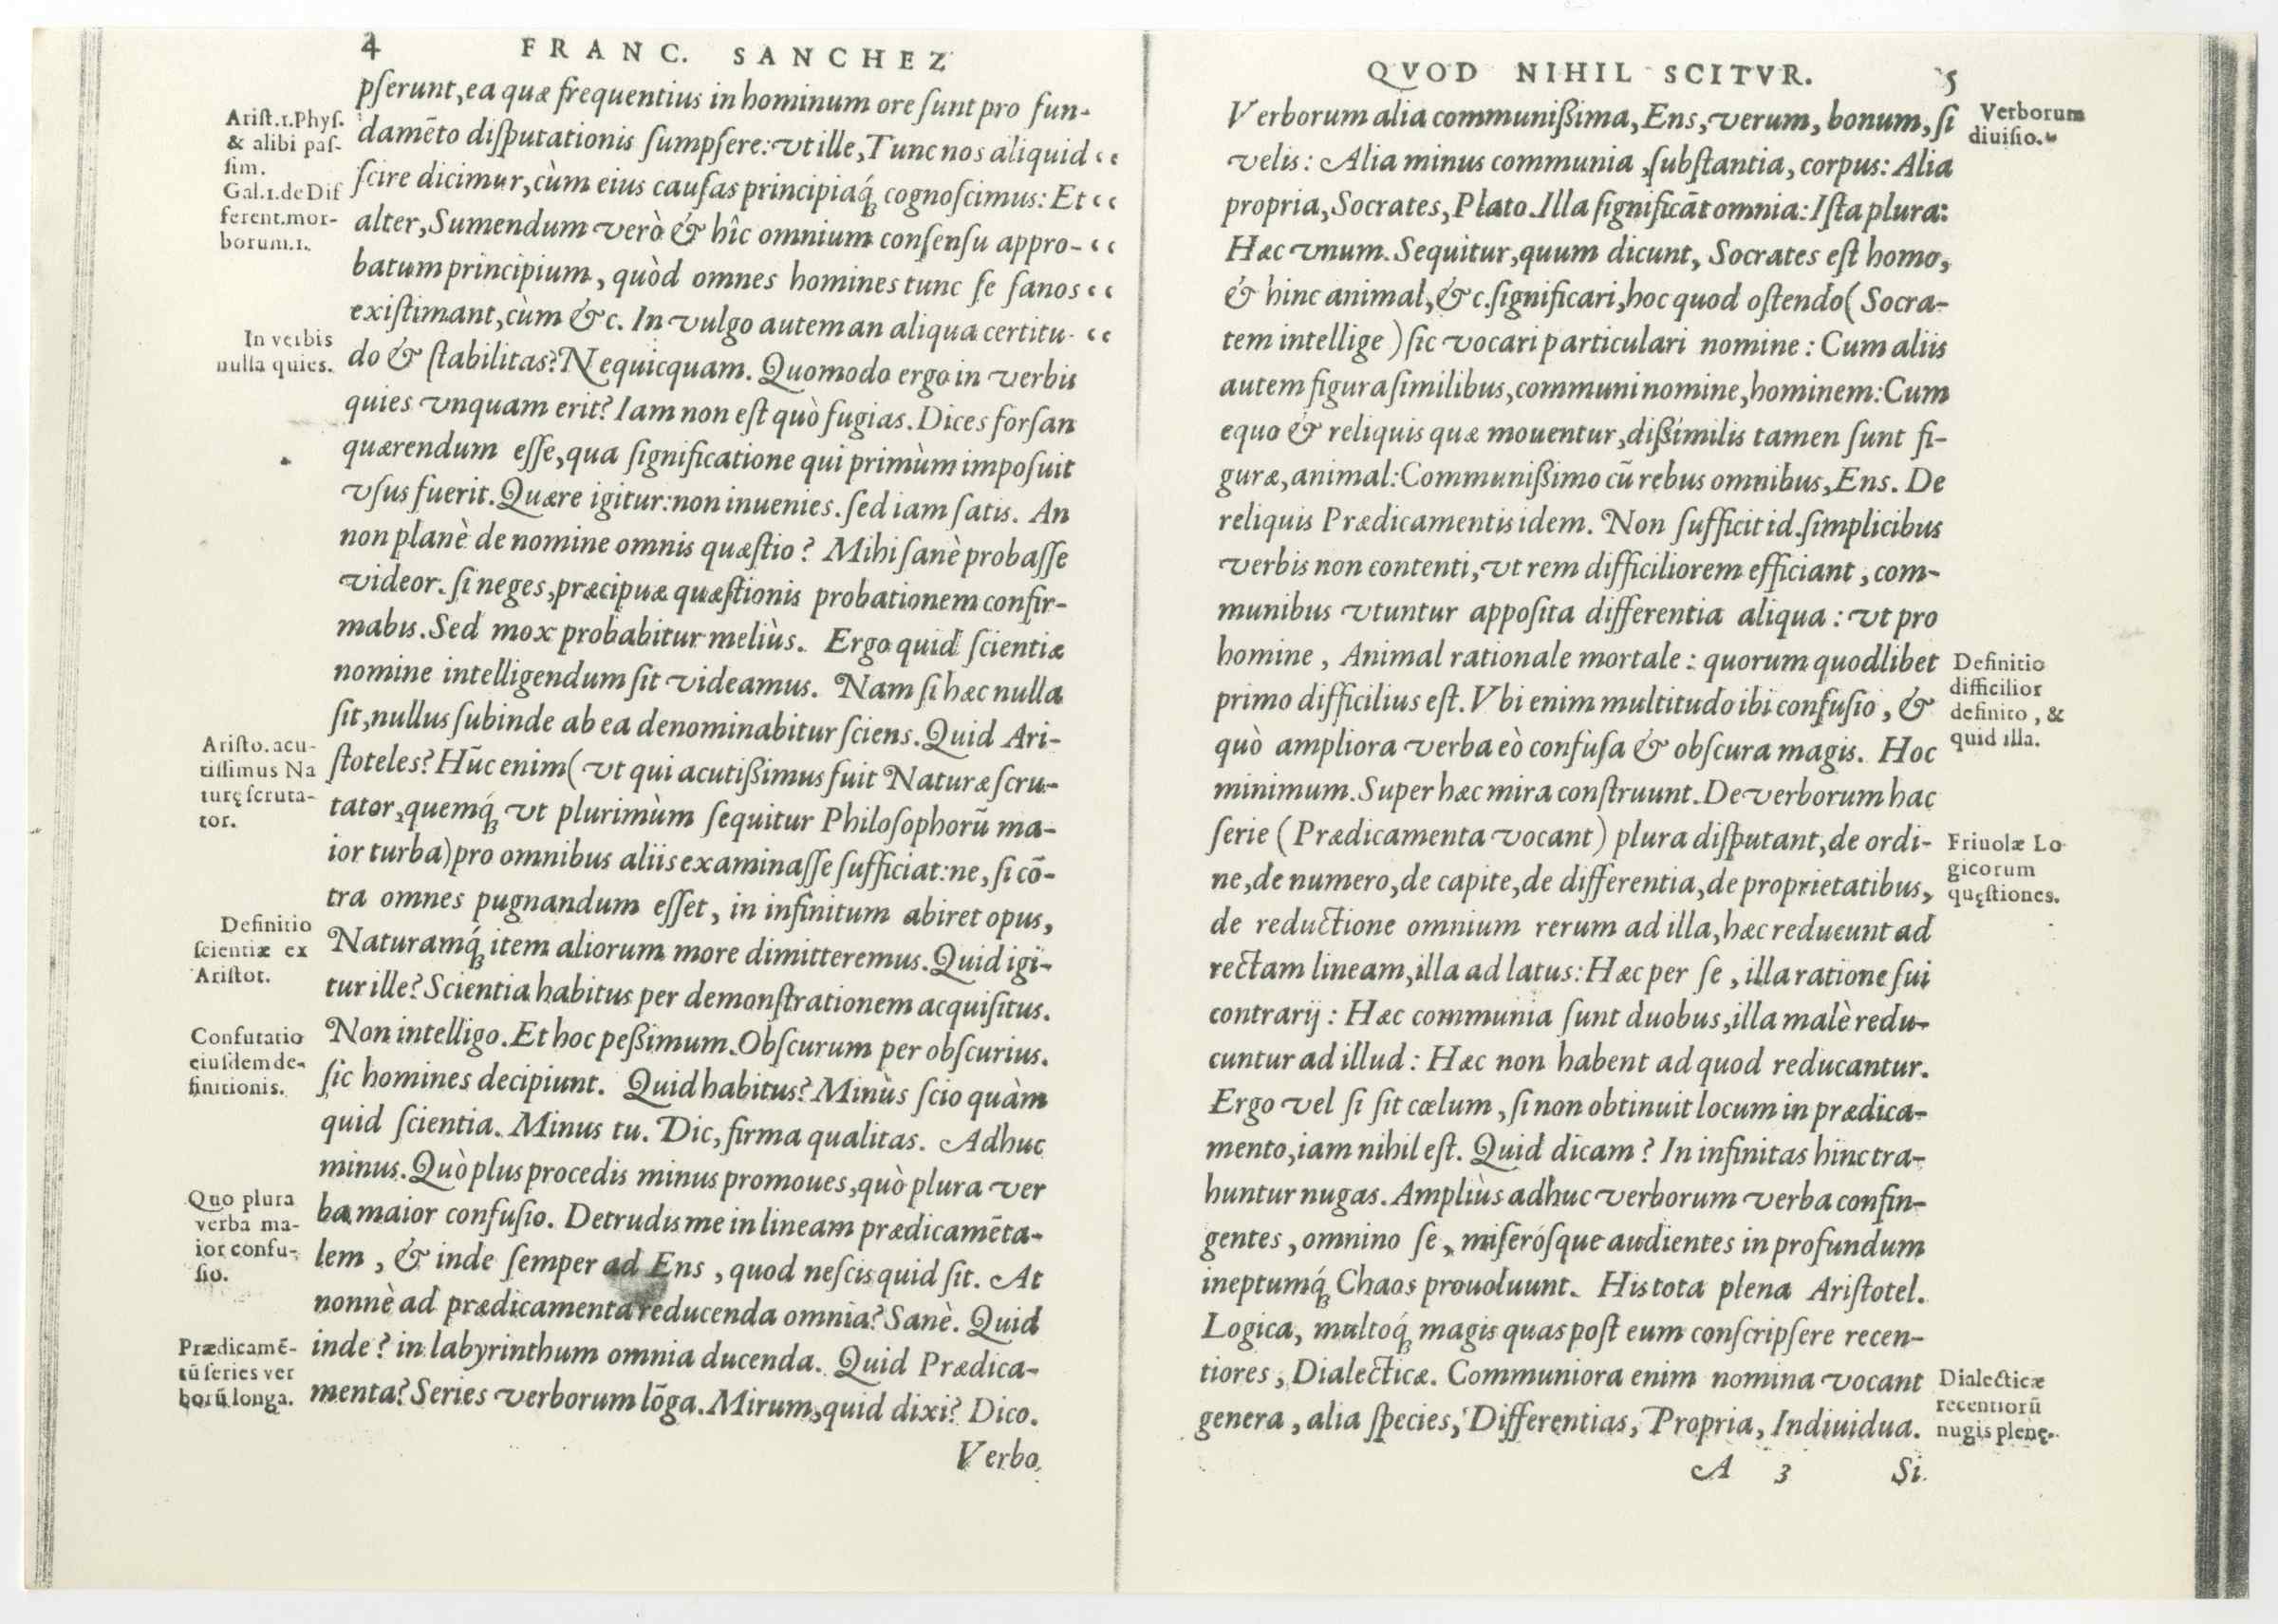 4 FRANC. SANCHEZ
pſerunt, ea quæ frequentius in hominum ore ſunt pro fun-
damẽto diſputationis ſumpſere: vt ille, Tunc nos aliquid “
ſcire dicimur, cùm eius cauſas principiaq́; cognoſcimus: Et “
alter, Sumendum verò & hîc omnium conſenſu appro- “
batum principium, quòd omnes homines tunc ſe ſanos “
exiſtimant, cùm &c. In vulgo autem an aliqua certitu- “
do & ſtabilitas? Nequicquam. Quomodo ergo in verbis
quies vnquam erit? Iam non eſt quò fugias. Dices forſan
quærendum eſſe, qua ſignificatione qui primùm impoſuit
vſus fuerit. Quære igitur: non inuenies. ſed iam ſatis. An
non planè de nomine omnis quæſtio? Mihi ſanè probaſſe
videor. ſi neges, præcipuæ quæſtionis probationem confir-
mabis. Sed mox probabitur meliùs. Ergo quid ſcientiæ
nomine intelligendum ſit videamus. Nam ſi hæc nulla
ſit, nullus ſubinde ab ea denominabitur ſciens. Quid Ari-
ſtoteles? Hũc enim (vt qui acutißimus fuit Naturæ ſcru-
tator, quemq́; vt plurimùm ſequitur Philoſophorũ ma-
ior turba) pro omnibus aliis examinaſſe ſufficiat: ne, ſi cõ-
tra omnes pugnandum eſſet, in infinitum abiret opus,
Naturamq́; item aliorum more dimitteremus. Quid igi-
tur ille? Scientia habitus per demonſtrationem acquiſitus.
Non intelligo. Et hoc peßimum. Obſcurum per obſcurius.
ſic homines decipiunt. Quid habitus? Minùs ſcio quàm
quid ſcientia. Minus tu. Dic, firma qualitas. Adhuc
minus. Quò plus procedis minus promoues, quò plura ver
ba maior confuſio. Detrudis me in lineam prædicamẽta-
lem, & inde ſemper ad Ens, quod neſcis quid ſit. At
nonnè ad prædicamenta reducenda omnia? Sanè. Quid
inde? in labyrinthum omnia ducenda. Quid Prædica-
menta? Series verborum lõga. Mirum, quid dixi? Dico.
Verbo
Ariſt.1.Phyſ.
& alibi paſ-
ſim.
Gal.1.de Dif
ferent.mor-
borum.1.
In verbis
nulla quies.
Ariſto. acu-
tiſſimus Na
turę ſcruta-
tor.
Definitio
ſcientiæ ex
Ariſtot.
Confutatio
eiuſdem de-
finitionis.
Quo plura
verba ma-
ior confu-
ſio.
Prædicamẽ-
tũ ſeries ver
borũ longa.
QVOD NIHIL SCITVR. 5
Verborum alia communißima, Ens, verum, bonum, ſi
velis: Alia minus communia, ſubſtantia, corpus: Alia
propria, Socrates, Plato. Illa ſignificãt omnia: Iſta plura:
Hæc vnum. Sequitur, quum dicunt, Socrates eſt homo,
& hinc animal, &c. ſignificari, hoc quod oſtendo (Socra-
tem intellige) ſic vocari particulari nomine: Cum aliis
autem figura ſimilibus, communi nomine, hominem: Cum
equo & reliquis quæ mouentur, dißimilis tamen ſunt fi-
guræ, animal: Communißimo cũ rebus omnibus, Ens. De
reliquis Prædicamentis idem. Non ſufficit id. ſimplicibus
verbis non contenti, vt rem difficiliorem efficiant, com-
munibus vtuntur appoſita differentia aliqua: vt pro
homine, Animal rationale mortale: quorum quodlibet
primo difficilius eſt. Vbi enim multitudo ibi confuſio, &
quò ampliora verba eò confuſa & obſcura magis. Hoc
minimum. Super hæc mira conſtruunt. De verborum hac
ſerie (Prædicamenta vocant) plura diſputant, de ordi-
ne, de numero, de capite, de differentia, de proprietatibus,
de reductione omnium rerum ad illa, hæc reducunt ad
rectam lineam, illa ad latus: Hæc per ſe, illa ratione ſui
contrarij: Hæc communia ſunt duobus, illa malè redu-
cuntur ad illud: Hæc non habent ad quod reducantur.
Ergo vel ſi ſit cœlum, ſi non obtinuit locum in prædica-
mento, iam nihil eſt. Quid dicam? In infinitas hinc tra-
huntur nugas. Ampliùs adhuc verborum verba confin-
gentes, omnino ſe, miſeróſque audientes in profundum
ineptumq́; Chaos prouoluunt. His tota plena Ariſtotel.
Logica, multoq́; magis quas poſt eum conſcripſere recen-
tiores, Dialecticæ. Communiora enim nomina vocant
genera, alia ſpecies, Differentias, Propria, Indiuidua.
A 3 Si
Verborum
diuiſio.
Definitio
difficilior
definito, &
quid illa.
Friuolæ Lo
gicorum
quęſtiones.
Dialecticæ
recentiorũ
nugis plenę.